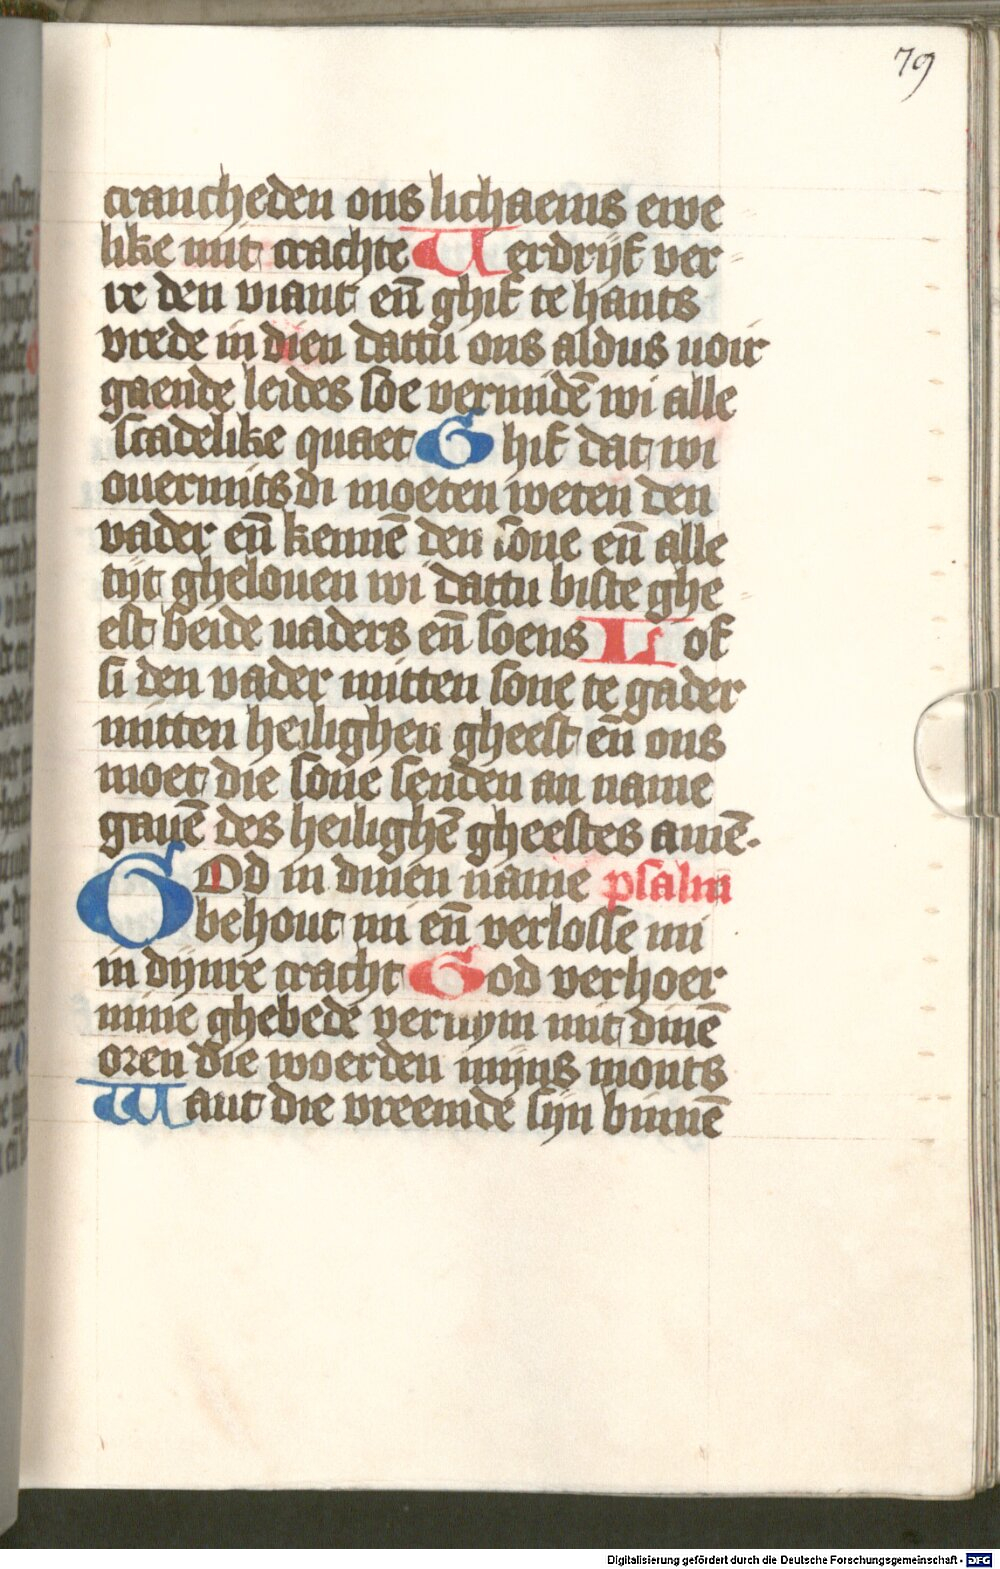 79
crancheden ons lichaems ewe
like mit crachte Verdrijf ver-
re den viant en̄ ghif te hants
vrede in dien dattu ons aldus voir
gaende leides soe vermidē wi alle
scadelike quaet Ghif dat wi
ouermits di moeten weten den
vader en̄ kennē den sone en̄ alle
tijt ghelouen wi dattu biste ghe
est beide vaders en̄ soens Lof
si den vader mitten sone te gader
mitten heilighen gheest en̄ ons
moet die sone senden an name
gauē des heilighē gheestes amē.
GOd in dinen name psalm
behout mi en̄ verlosse mi
in dijnre cracht God verhoer
mine ghebede vernym mit dinē
oren die woerden mijns monts
Want die vreemde sijn binnē
Digitalisierung gefördert durch die Deutsche Forschungsgemeinschaft - DFG